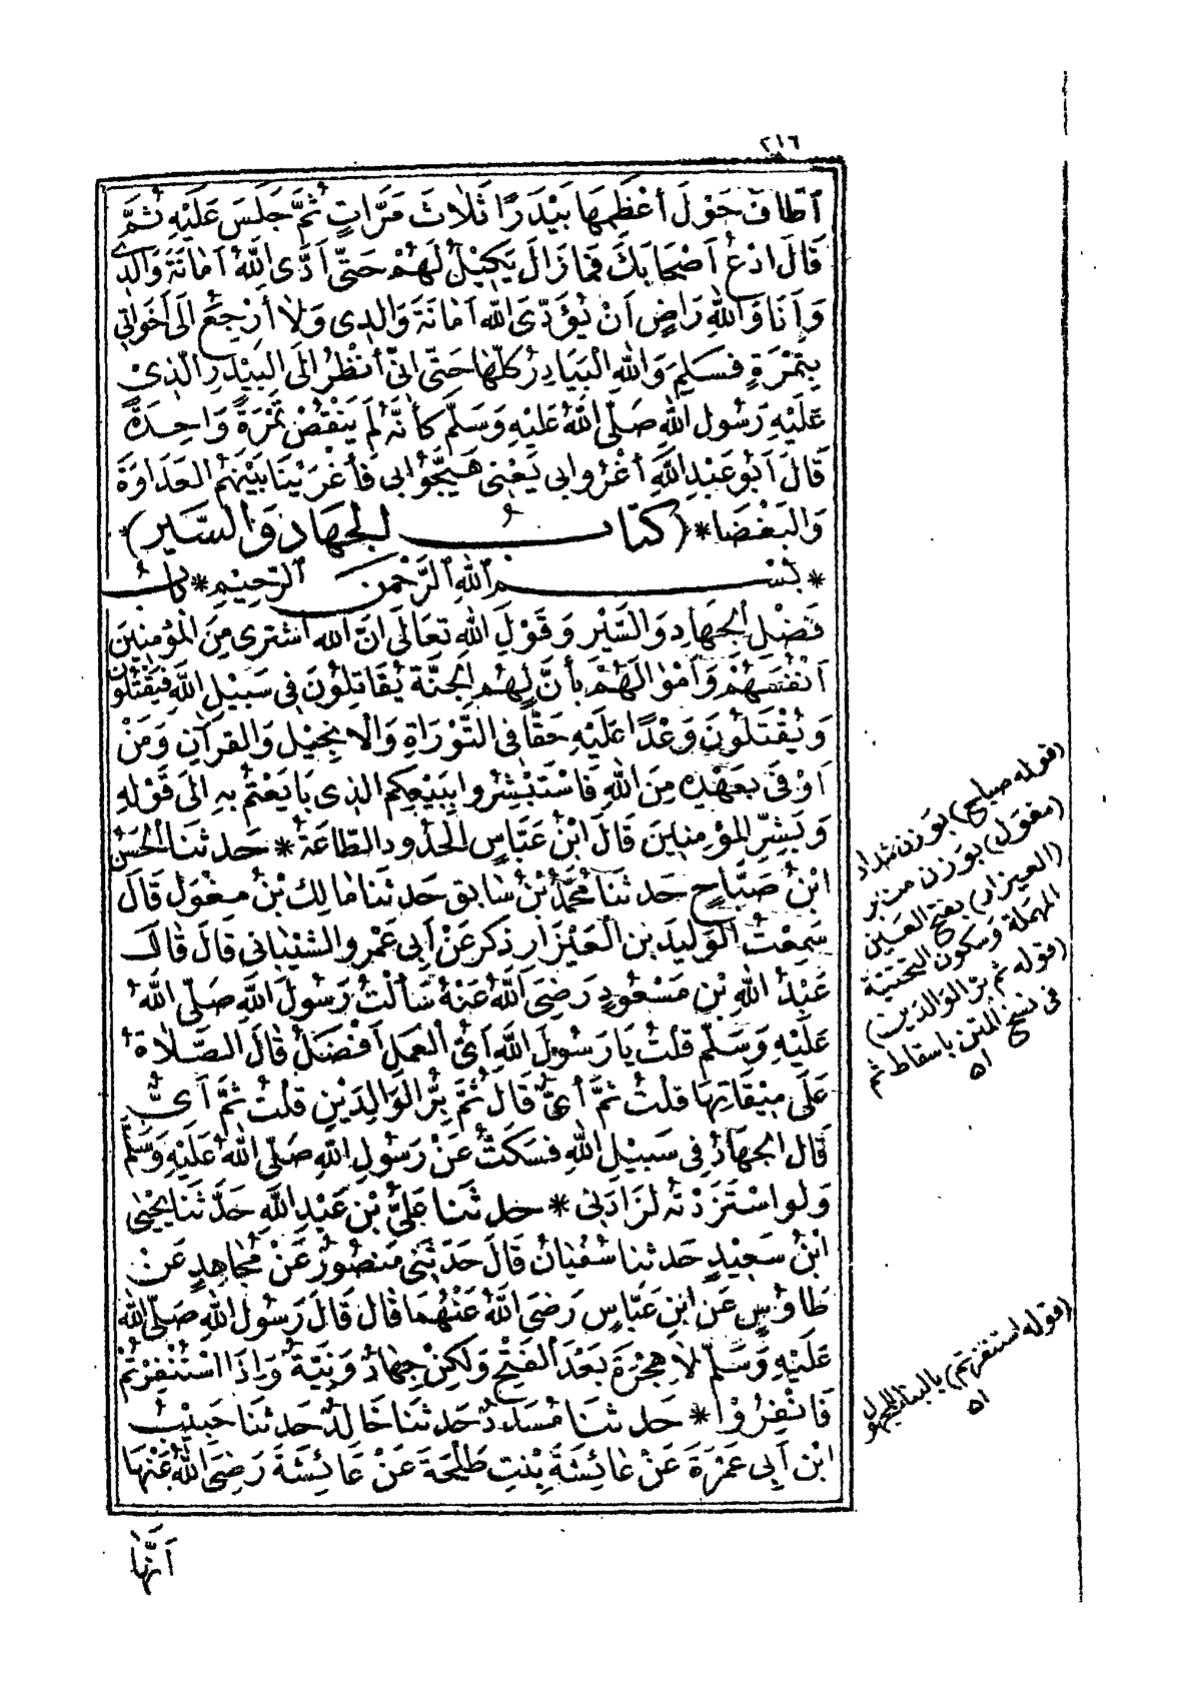 ٢١٦
أَطَافَ حَوْلَ أَعْظَمِهَا بَيْدَرًا ثَلَاثَ مَرَّاتٍ ثُمَّ جَلَسَ عَلَيْهِ ثُمَّ
قَالَ ادْعُ أَصْحَابَكَ فَمَا زَالَ يَكِيْلُ لَهُمْ حَتَّى أَدَّى اللهُ أَمَانَةَ وَالِدِي
وَأَنَا وَاللهِ رَاضٍ أَنْ يُؤَدِّيَ اللهُ أَمَانَةَ وَالِدِي وَلَا أَرْجِعُ إِلَى أَخَوَاتِي
بِتَمْرَةٍ فَسَلِمَ وَاللهِ الْبَيَادِرُ كُلُّهَا حَتَّى إِنِّي أَنْظُرُ إِلَى الْبَيْدَرِ الَّذِيْ
عَلَيْهِ رَسُولُ اللهِ صَلَّى اللهُ عَلَيْهِ وَسَلَّمَ كَأَنَّهُ لَمْ يَنْقُصْ تَمْرَةً وَاحِدَةً
قَالَ أَبُو عَبْدِ اللهِ أُغْرُوا بِي يَعْنِي هَيَّجُوْا بِي فَأَغْرَيْنَا بَيْنَهُمُ الْعَدَاوَةَ
وَالْبَغْضَا * (كتَابُ الْجِهَادِ وَالسِّيَرِ) *
* بِسْمِ اللهِ الرَّحْمٰنِ الرَّحِيْمِ * بَابُ
فَضْلِ الْجِهَادِ وَالسِّيَرِ وَقَوْلِ اللهِ تَعَالَى إِنَّ اللهَ اشْتَرَى مِنَ الْمُؤْمِنِيْنَ
أَنْفُسَهُمْ وَأَمْوَالَهُمْ بِأَنَّ لَهُمُ الْجَنَّةَ يُقَاتِلُوْنَ فِي سَبِيْلِ اللهِ فَيَقْتُلُوْنَ
وَيُقْتَلُوْنَ وَعْدًا عَلَيْهِ حَقًّا فِي التَّوْرَاةِ وَالْإِنْجِيْلِ وَالْقُرْآنِ وَمَنْ
أَوْفَى بِعَهْدِهِ مِنَ اللهِ فَاسْتَبْشِرُوا بِبَيْعِكُمُ الَّذِي بَايَعْتُمْ بِهِ إِلَى قَوْلِهِ
وَبَشِّرِ الْمُؤْمِنِيْنَ قَالَ ابْنُ عَبَّاسٍ الْحُدُودُ الطَّاعَةُ * حَدَّثَنَا الْحَسَنُ
ابْنُ صَبَّاحٍ حَدَّثَنَا مُحَمَّدُ بْنُ سَابِقٍ حَدَّثَنَا مَالِكُ بْنُ مِغْوَلٍ قَالَ
سَمِعْتُ الْوَلِيْدَ بْنَ الْعَيْزَارِ ذَكَرَ عَنْ أَبِي عَمْرٍو الشَّيْبَانِي قَالَ قَالَ
عَبْدُ اللهِ بْنِ مَسْعُودٍ رَضِيَ اللهُ عَنْهُ سَأَلْتُ رَسُولَ اللهِ صَلَّى اللهُ
عَلَيْهِ وَسَلَّمَ قُلْتُ يَا رَسُولَ اللهِ أَيُّ الْعَمَلِ أَفْضَلُ قَالَ الصَّلَاةُ
عَلَى مِيْقَاتِهَا قُلْتُ ثُمَّ أَيُّ قَالَ ثُمَّ بِرُّ الْوَالِدَيْنِ قُلْتُ ثُمَّ أَيُّ
قَالَ الْجِهَادُ فِي سَبِيْلِ اللهِ فَسَكَتُّ عَنْ رَسُولِ اللهِ صَلَّى اللهُ عَلَيْهِ وَسَلَّمَ
وَلَوِ اسْتَزَدْتُهُ لَزَادَنِي * حَدَّثَنَا عَلِيُّ بْنُ عَبْدِ اللهِ حَدَّثَنَا يَحْيَى
ابْنُ سَعِيْدٍ حَدَّثَنَا سُفْيَانُ قَالَ حَدَّثَنِي مَنْصُوْرٌ عَنْ مُجَاهِدٍ عَنْ
طَاوُسٍ عَنِ ابْنِ عَبَّاسٍ رَضِيَ اللهُ عَنْهُمَا قَالَ قَالَ رَسُولُ اللهِ صَلَّى اللهُ
عَلَيْهِ وَسَلَّمَ لَا هِجْرَةَ بَعْدَ الْفَتْحِ وَلَكِنْ جِهَادٌ وَنِيَّةٌ وَإِذَا اسْتُنْفِرْتُمْ
فَانْفِرُوْا * حَدَّثَنَا مُسَدَّدٌ حَدَّثَنَا خَالِدٌ حَدَّثَنَا حَبِيْبُ
ابْنُ أَبِي عَمْرَةَ عَنْ عَائِشَةَ بِنْتِ طَلْحَةَ عَنْ عَائِشَةَ رَضِيَ اللهُ عَنْهَا
أَنَّهَا
(قوله صباح) بوزن شداد
(مغول) بوزن منبر
(العيزار) بفتح العين
المهملة وسكون التحتية
(قوله ثم بر الوالدين)
في نسخ المتن باسقاط ثم
اه
(قوله استنفرتم) بالبنا للمجهول
اه